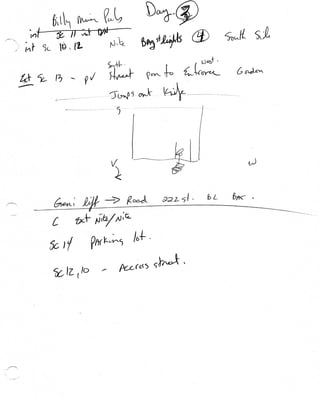 Billy Miner Pub Day 3
int Sc 11 int DAY
int Sc 10, 12 Nite Bay Lights 4 South Side
Ext Sc 13 - pv South Street pan to West Entrance Gordon
Jumps out Knife
S
V
W
Geni lift → Road 222 st. BC
C Ext Nite/Nite
Sc 14 Parking lot.
Sc 12, 10 - Accross street.